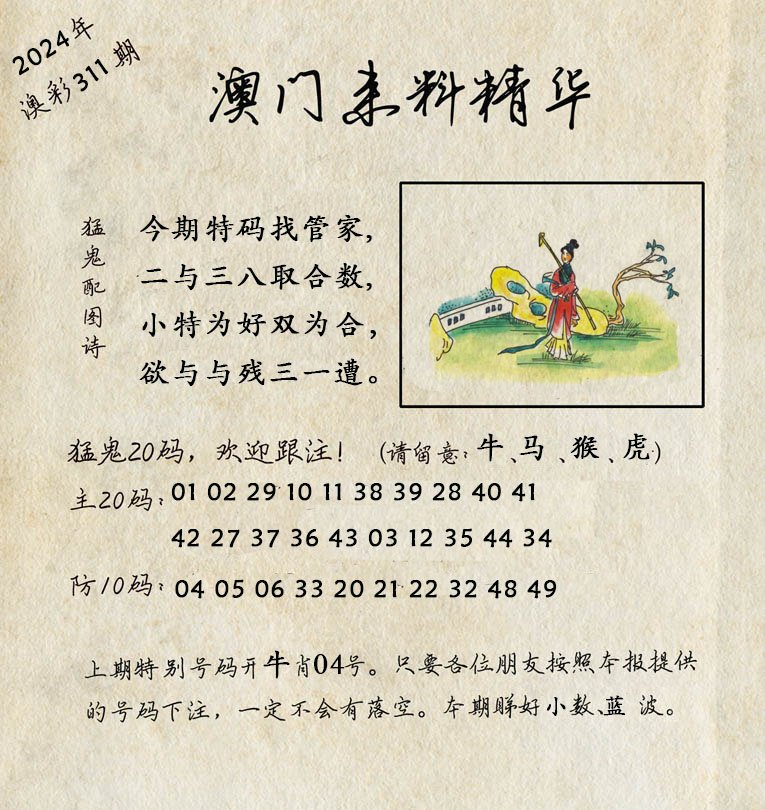 2024年
澳彩311期
澳门来料精华
猛鬼配图诗
今期特码找管家，
二与三八取合数，
小特为好双为合，
欲与与残三一遭。
猛鬼20码，欢迎跟注！（请留意：牛、马、猴、虎）
主20码：01 02 29 10 11 38 39 28 40 41
42 27 37 36 43 03 12 35 44 34
防10码：04 05 06 33 20 21 22 32 48 49
上期特别号码开牛肖04号。只要各位朋友按照本报提供
的号码下注，一定不会有落空。本期睇好小数、蓝 波。